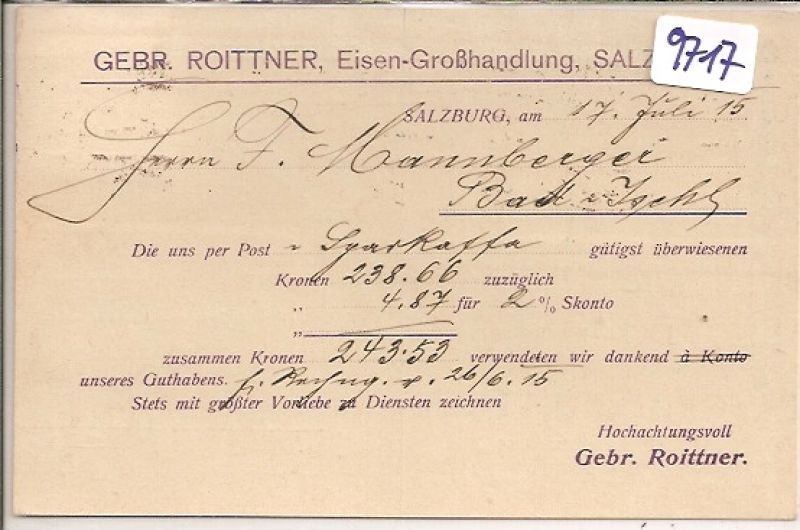 9717
GEBR. ROITTNER, Eisen-Großhandlung, SALZ
SALZBURG, am 17. Juli 15
Herrn F. Mannberger
Bad Ischl
Die uns per Post Sparkassa gütigst überwiesenen
Kronen 238.66 zuzüglich
„ 4.87 für 2 % Skonto
„
zusammen Kronen 243.53 verwendeten wir dankend à Konto
unseres Guthabens. f. Rechng. v. 26/6.15
Stets mit größter Vorliebe zu Diensten zeichnen
Hochachtungsvoll
Gebr. Roittner.